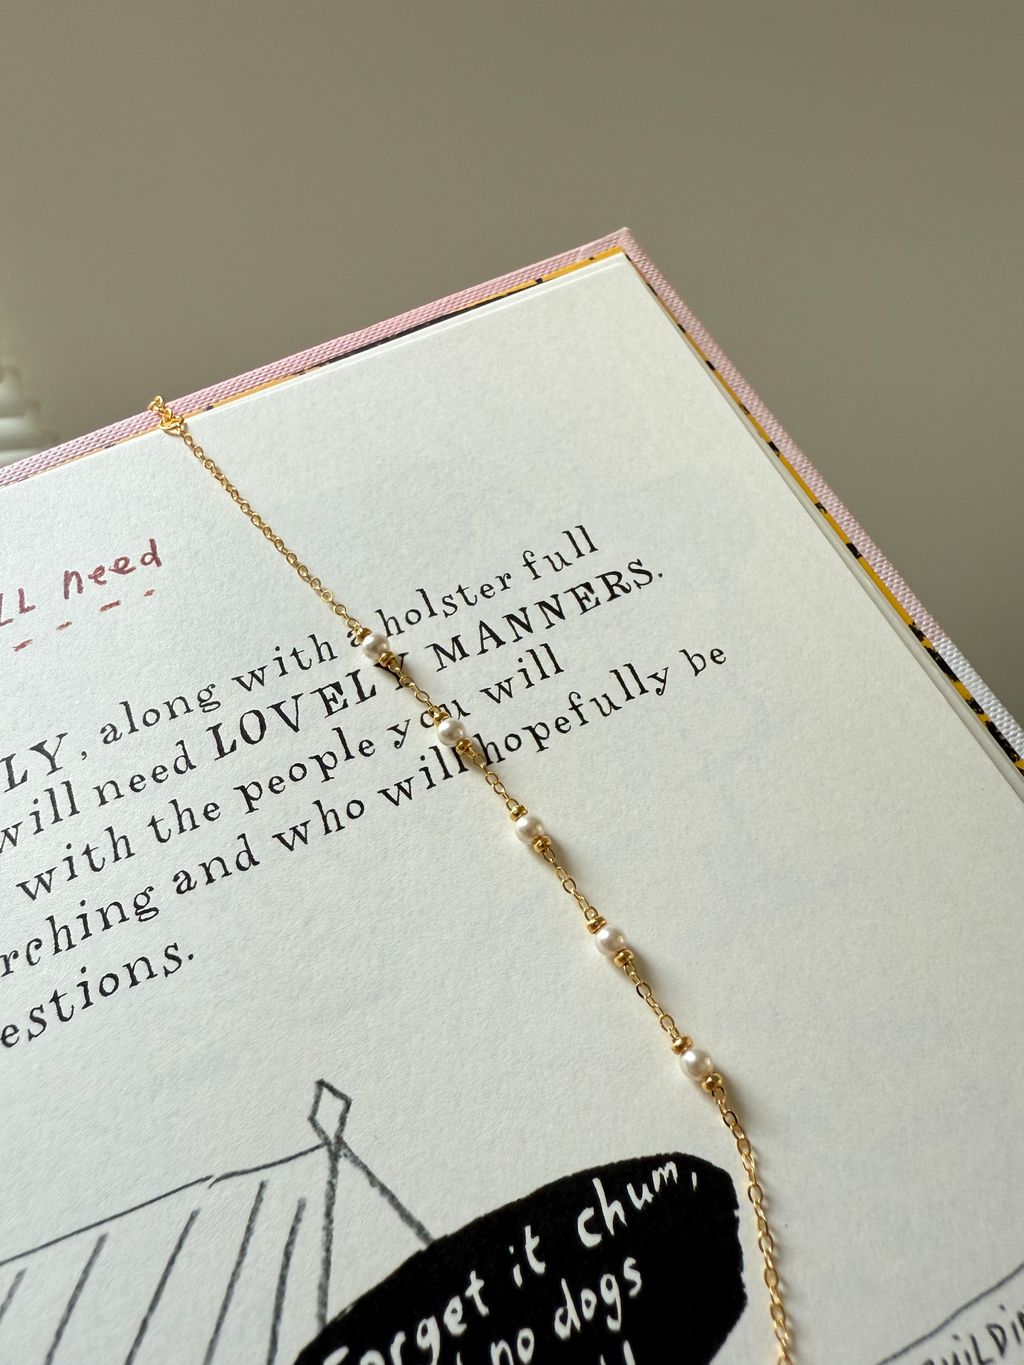 need
LY, along with a holster full
will need LOVELY MANNERS.
with the people you will
rching and who will hopefully be
estions.
forget it chum,
no dogs